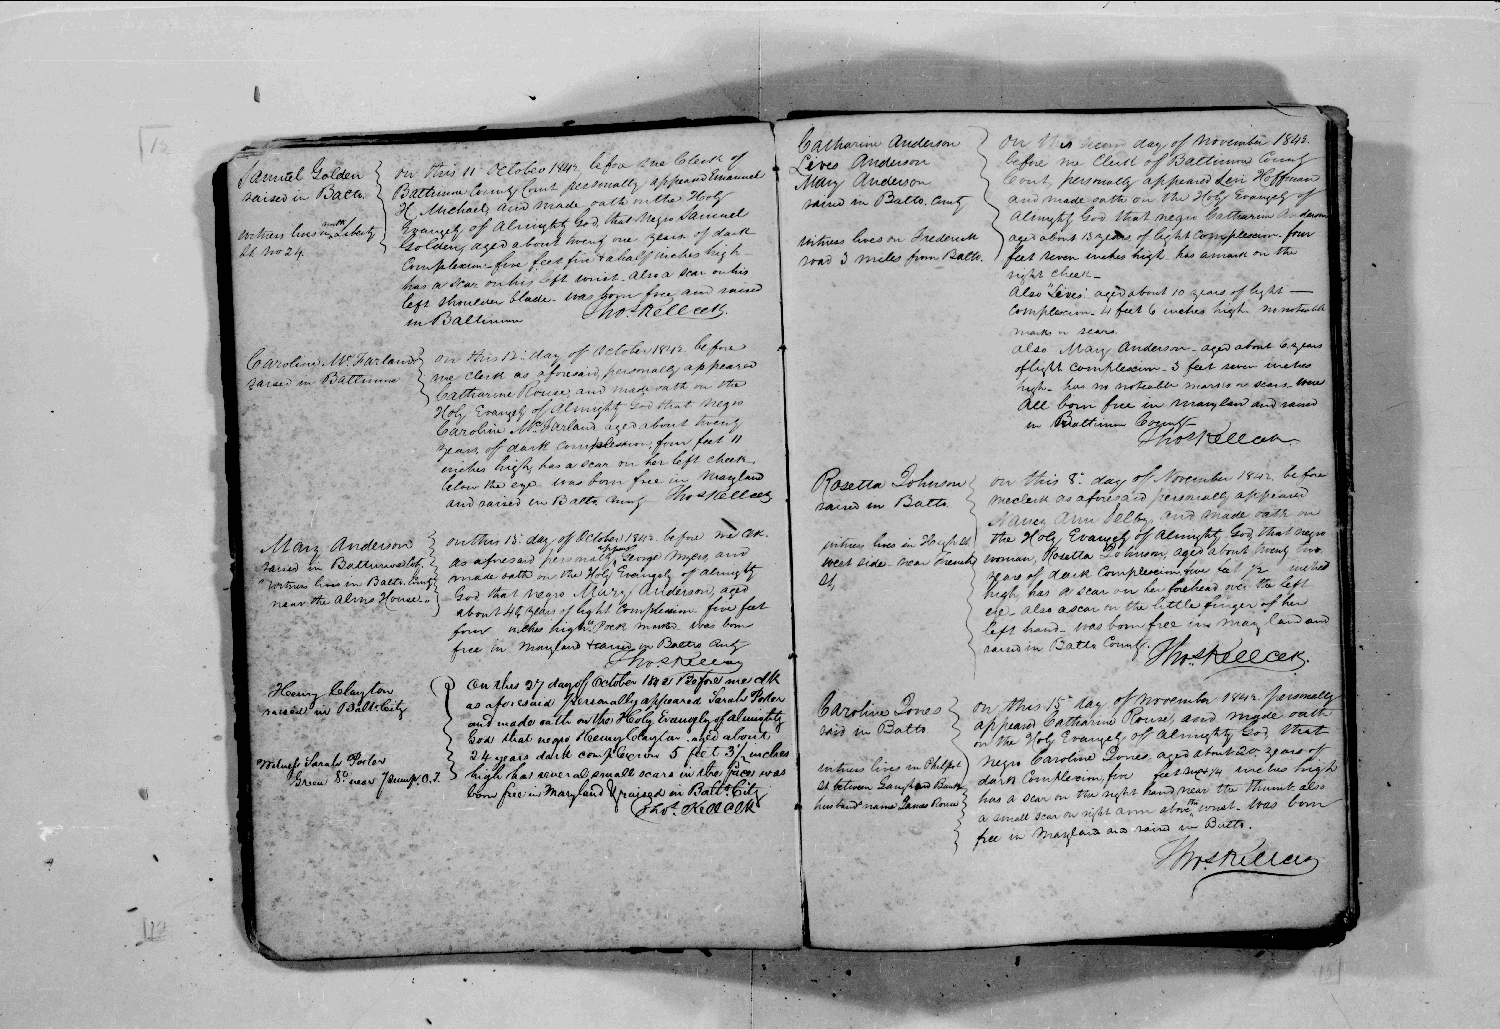 Samuel Golden
raised in Balto.
witness lives in north Liberty
St. no 24.
on this 11th October 1842, before me Clerk of
Baltimore County Court personally appeared Emanuel
H. Michael, and made oath on the Holy
Evangely of Almighty God, that Negro Samuel
Golden, aged about twenty one years, of dark
Complexion five feet five & a half inches high
has a scar on his left wrist. also a scar on his
left shoulder blade. was born free and raised
in Baltimore
Thos. Kell CClk.
Caroline Mc.Farland
raised in Baltimore
on this 12th day of October 1842 before
me clerk as aforesaid, personally appeared
Catharine Rouse, and made oath on the
Holy Evangely of Almighty God that negro
Caroline McFarland aged about twenty
years, of dark complexion, four feet 11
inches high, has a scar on her left cheek,
below the eye was born free in Maryland
and raised in Balto. County
Thos Kell CClk
Mary Anderson
raised in Baltimore
witness lives in Balto. County
near the Alms House
on this 13th day of October 1842. before me Clk.
as aforesaid personally appeared George Myers and
made oath on the Holy Evangely of Almighty
God, that negro Mary Anderson, aged
about years of light Complexion five feet
four inches high. Pock marked was born
free in Maryland & raised in Balto County
Thos Kell
Henry Clayton
raised in Balt. City
Witness Sarah Porter
Green St. near
on this 27 day of October 1842 Before me clk
as aforesaid Personally appeared Sarah Porter
and made oath on the Holy Evangely of almighty
God that negro Henry Clayton aged about
24 years dark complexion 5 feet 3½ inches
high has several small scars in the face was
born free in Maryland & raised in Balto City
Thos. Kell Clk
Catharine Anderson
Lives Anderson
Mary Anderson
raised in Balto. County
witness lives on Frederick
road 3 miles from Balto.
on this second day of November 1842.
before me Clerk of Baltimore County
Court, personally appeared Levi Hoffman
and made oath on the Holy Evangely of
Almighty God that negro Catharine Anderson
aged about 13 years, of light complexion. four
feet seven inches high has a mark on the
right cheek
Also "Lives" aged about 10 years of light
complexion 4 feet 6 inches high no noticable
marks or scars
also Mary Anderson aged about 6 years
of light complexion 3 feet seven inches
high has no noticable marks or scars were
All born free in maryland and raised
in Baltimore County
Thos Kell CClk.
Rosetta Johnson
raised in Balto.
witness lives in St
west side near French
St,
on this 8th day of November 1842. before
me clerk as aforesaid personally appeared
Nancy Ann Selby, and made oath on
the Holy Evangely of Almighty God, that negro
woman, Rosetta Johnson, aged about twenty two
years of dark complexion, five feet ½ inches
high, has a scar on her forehead over the left
eye also a scar on the little finger of her
left hand was born free in maryland and
raised in Balto County.
Thos Kell CClk.
Caroline Jones
raisd in Balto
witness lives in Philpot
St between and Bank
husband name James Rouse
on this 15th day of November 1842. personally
appeard Catharine Rouse, and made oath
on the Holy Evangely of Almighty God, that
negro Caroline Jones, aged about 20 years of
dark Complexion, five feet inches high
has a scar on the right hand near the thumb, also
a small scar on right arm above the wrist. was born
free in Maryland and raised in Balto.
Thos Kell